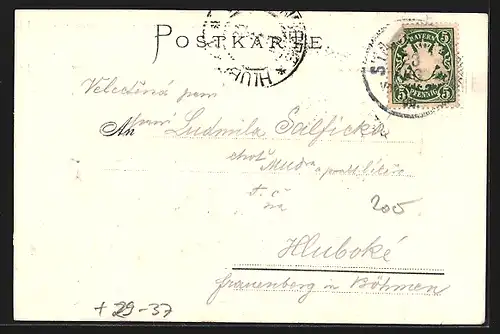 POSTKARTE
HLUB
BAYERN
5 PFENNIG 5
Velectěná paní
An paní Ludmila
choť Mudra
t. č.
na
200
Hluboké
Frauenberg in Böhmen
+ 29-37